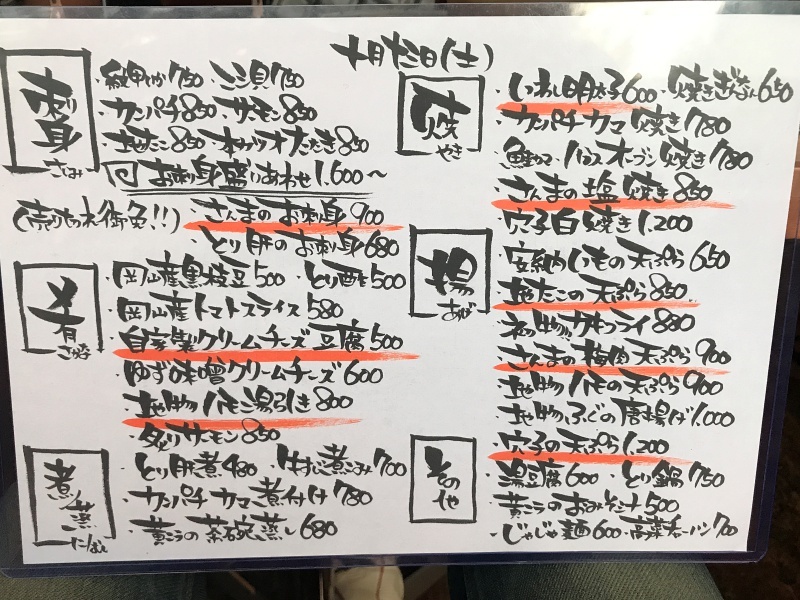 十月十三日(土)
刺身
さしみ
・紋甲いか750 ・ツブ貝750
・カンパチ850 ・サーモン850
・地たこ850 ・本カツオたたき850
お刺身盛りあわせ1,600〜
(売り切れ御免!!)
・さんまのお刺身900
・とり肝のお刺身680
肴
さかな
・岡山産黒枝豆500 ・とり酢500
・岡山産トマトスライス580
・自家製クリームチーズ豆腐500
・ゆず味噌クリームチーズ600
・地物ハモ湯引き800
・タタキサーモン850
煮/蒸
にもの
・とり肝煮480 ・牛すじ煮こみ700
・カンパチカマ煮付け780
・黄ニラの茶碗蒸し680
焼
やき
・いわし明太子600 ・焼きぎんなん650
・カンパチカマ焼き780
・鮭カマ・ハラスオーブン焼き780
・さんまの塩焼き850
・穴子白焼き1,200
揚
あげ
・安納いもの天ぷら650
・地たこの天ぷら850
・初物カキフライ880
・さんまの梅肉天ぷら900
・地物ハモの天ぷら900
・地物ふぐの唐揚げ1,000
・穴子の天ぷら1,200
その他
・湯豆腐600 ・とり鍋750
・黄ニラのおみそ汁500
・じゃじゃ麺600 ・高菜チャーハン700